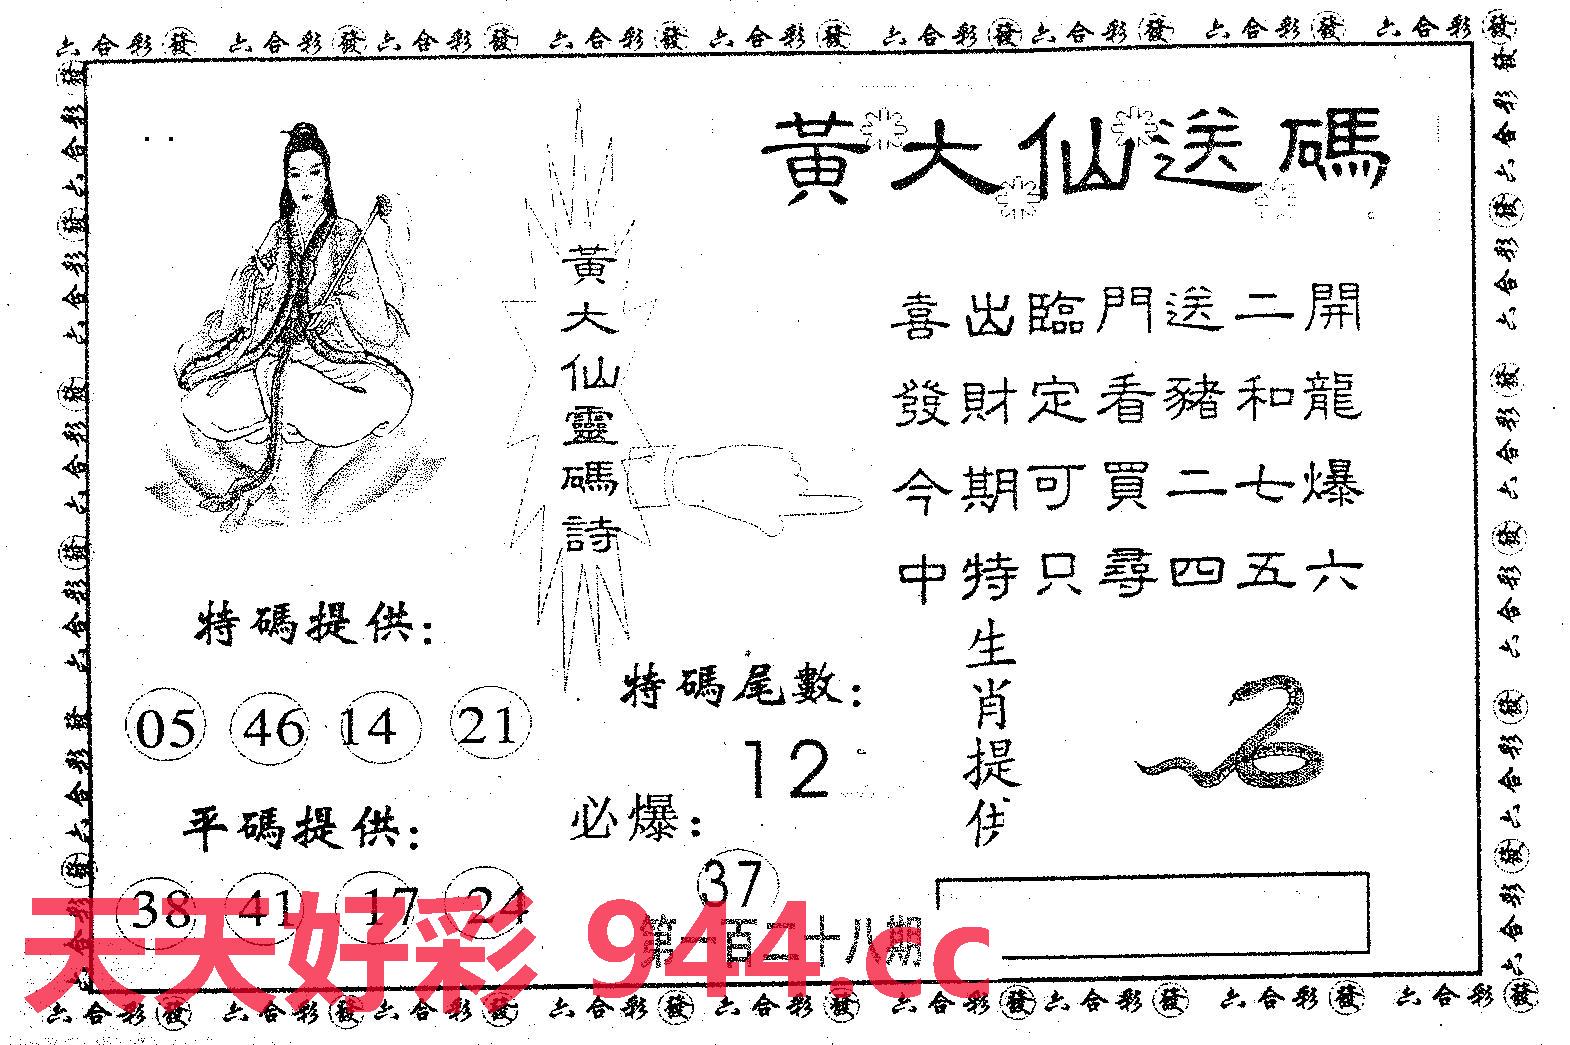 六合彩發 六合彩發六合彩發 六合彩發 六合彩發 六合彩發六合彩發 六合彩發 六合彩發
黃大仙送碼
黃大仙靈碼詩
喜出臨門送二開
發財定看豬和龍
今期可買二七爆
中特只尋四五六
特碼提供：
05 46 14 21
特碼尾數：
12
生肖提供
平碼提供：
38 41 17 24
必爆：
37
第一百二十八期
天天好彩 944.cc
六合彩發 六合彩發六合彩發 六合彩發 六合彩發 六合彩發六合彩發 六合彩發 六合彩發